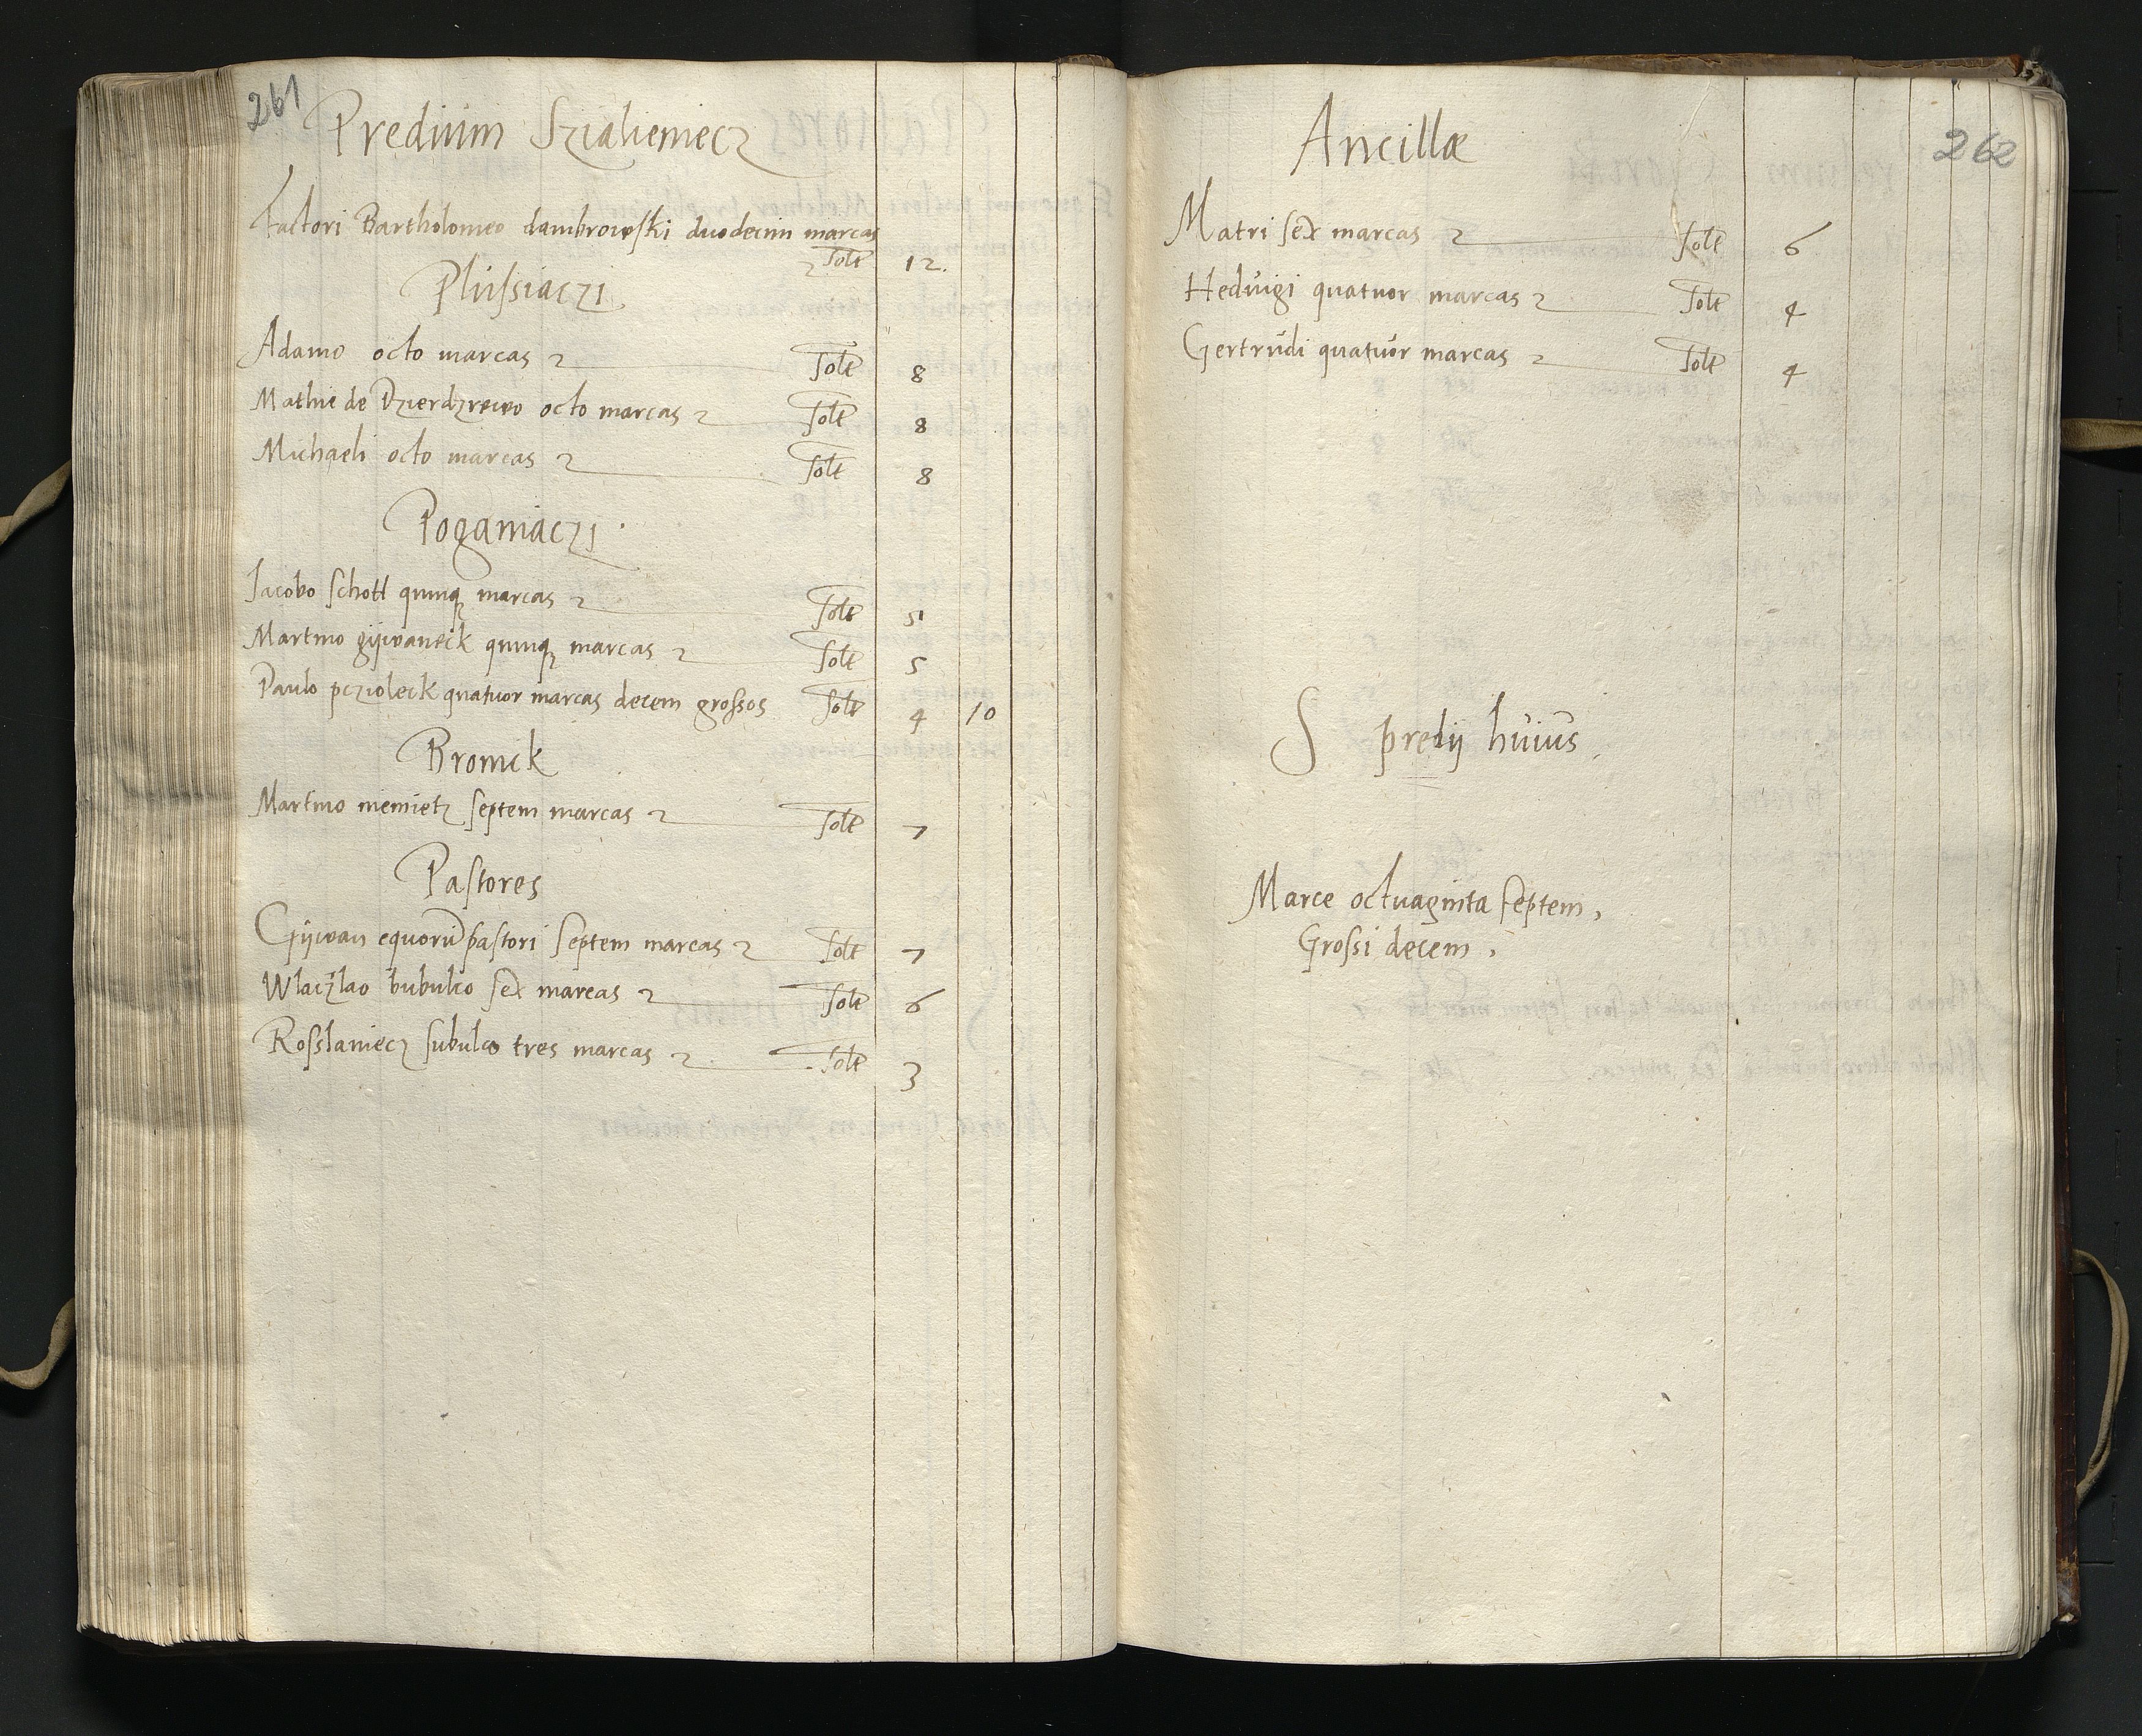 261
Predium Szialieniecz
Factori Bartholomeo dambrowski duodecim marcas
Solt 12.
Plussiaczi
Adamo octo marcas Solt 8
Mathie de Dzierdzrewo octo marcas Solt 8
Michaeli octo marcas Solt 8
Poganiaczi
Jacobo schott quinq marcas Solt 5
Martino gijwaneck quinq marcas Solt 5
Paulo pczioleck quatuor marcas decem grossos Solt 4 10
Bronick
Martino niemietz septem marcas Solt 7
Pastores
Gijwan equorū pastori septem marcas Solt 7
Wlaczlao bubulco sex marcas Solt 6
Rosslaniecz subulco tres marcas Solt 3
262
Ancillæ
Matri sex marcas Solt 6
Hedvigi quatuor marcas Solt 4
Gertrudi quatuor marcas Solt 4
S predij huius
Marce octuaginta septem,
Grossi decem,